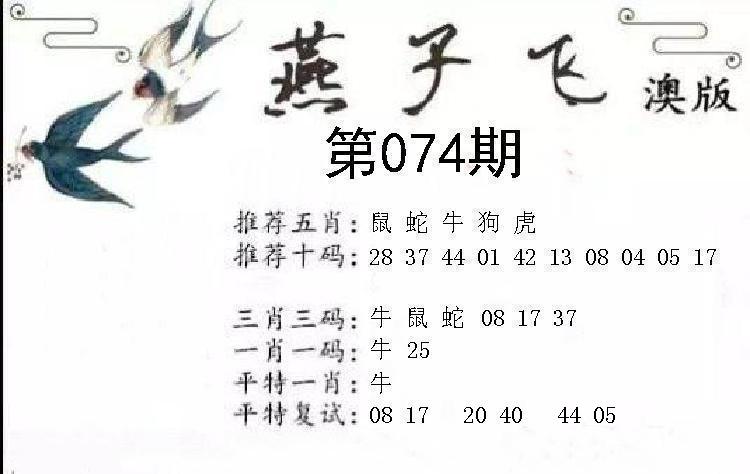 燕子飞 澳版
第074期
推荐五肖: 鼠 蛇 牛 狗 虎
推荐十码: 28 37 44 01 42 13 08 04 05 17
三肖三码: 牛 鼠 蛇 08 17 37
一肖一码: 牛 25
平特一肖: 牛
平特复试: 08 17 20 40 44 05